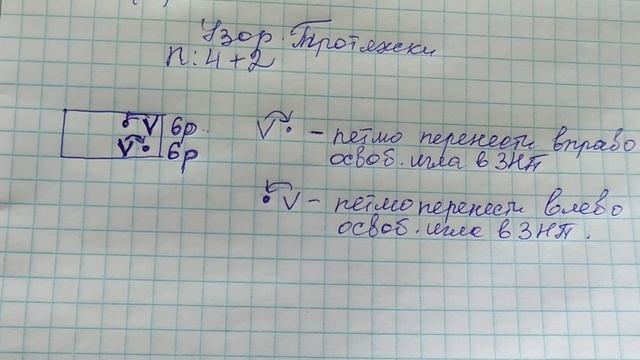 Узор. Протяжки
П: 4+2
6р.
6р
V• – петлю перенести вправо
освоб. игла в ЗНП
•V – петлю перенести влево
освоб. игла в ЗНП.